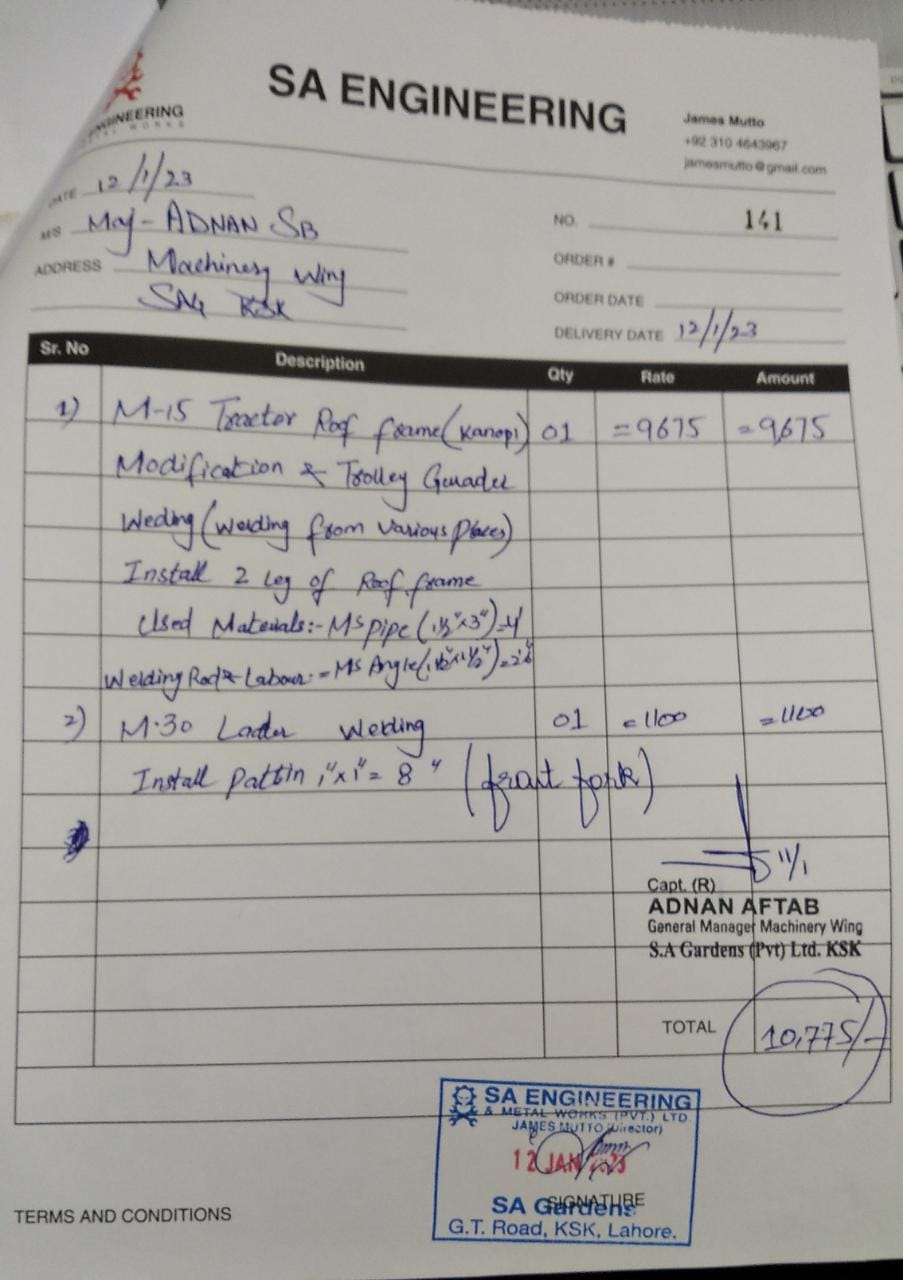 SA ENGINEERING
ENGINEERING
METAL WORKS
James Mutto
+92 310 4643967
jamesmutto@gmail.com
DATE 12/1/23
M/S Maj - ADNAN SB
ADDRESS Machinery Wing
SAG KSK
NO. 141
ORDER #
ORDER DATE
DELIVERY DATE 12/1/23
Sr. No Description Qty Rate Amount
1) M-15 Tractor Roof frame (Kanopi) 01 =9675 =9,675
Modification & Trolley
Weding (Welding from various places)
Install 2 Leg of Roof frame
Used Materials:- Ms pipe (1½"x3")=4'
Welding Rod & Labour:= Ms Angle
2) M-30 Lader Welding 01 =1100 =1100
Install Pattin 1"x1"= 8" (front fork)
11/1
Capt. (R)
ADNAN AFTAB
General Manager Machinery Wing
S.A Gardens (Pvt) Ltd. KSK
TOTAL 10,775/-
SA ENGINEERING
& METAL WORKS (PVT.) LTD
JAMES MUTTO (Director)
12 JAN 2023
SIGNATURE
SA Gardens
G.T. Road, KSK, Lahore.
TERMS AND CONDITIONS